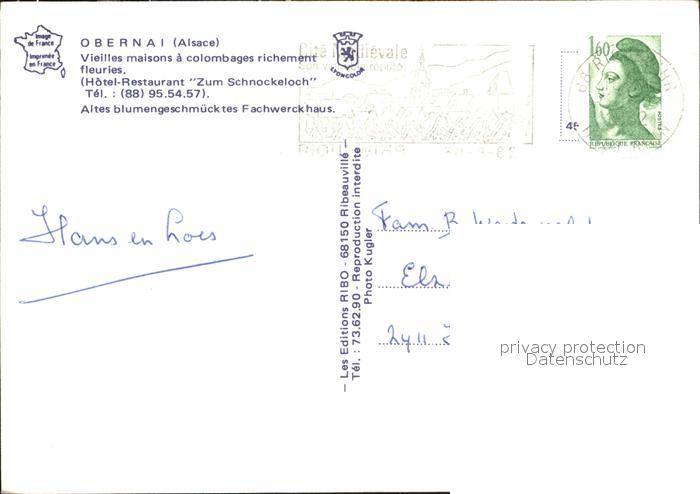 Image
de France
Imprimée
en France
OBERNAI (Alsace)
Vieilles maisons à colombages richement
fleuries.
(Hôtel-Restaurant "Zum Schnockeloch"
Tél. : (88) 95.54.57).
Altes blumengeschmücktes Fachwerckhaus.
LYONCOLOR
Cité Médiévale
1,60
POSTES
REPUBLIQUE FRANÇAISE
— Les Editions RIBO - 68150 Ribeauvillé —
Tél. : 73.62.90 - Reproduction interdite
Photo Kugler
Hans en Loes
Fam.
2411
privacy protection
Datenschutz